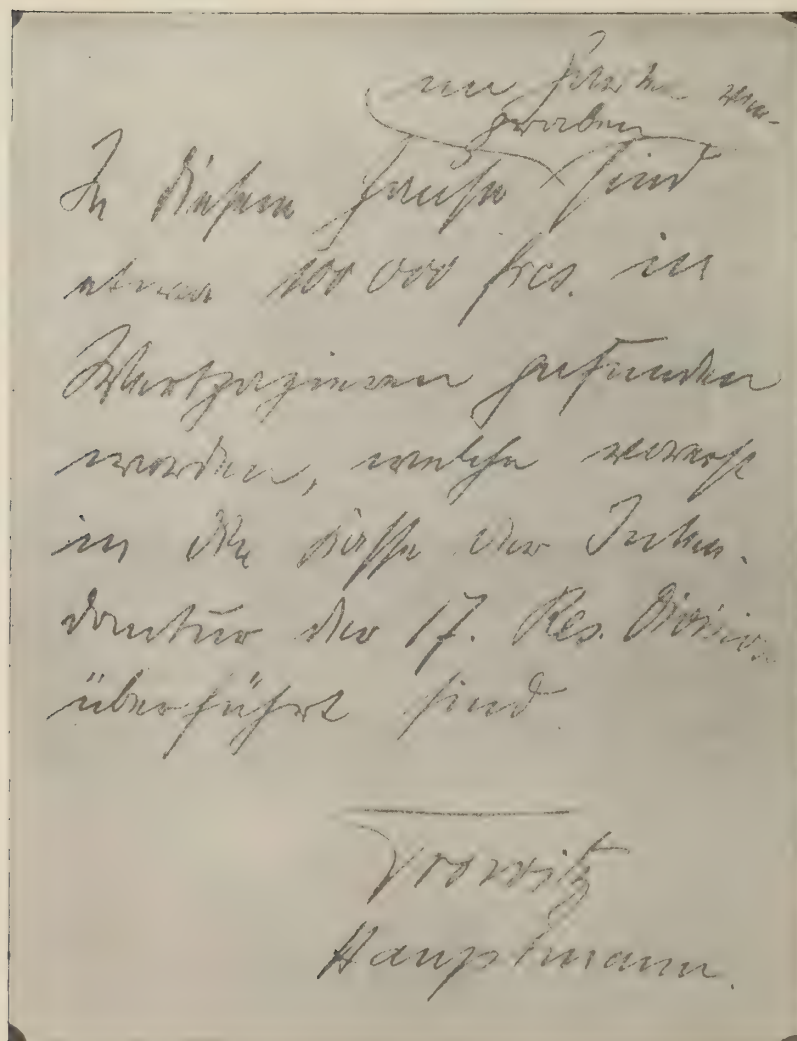 im Garten ver-
graben
In diesem Hause sind
etwa 100 000 frcs. in
Wertpapieren gefunden
worden, welche vorerst
in die Kasse der Inten-
dantur der 17. Res. Division
überführt sind
Hauptmann.